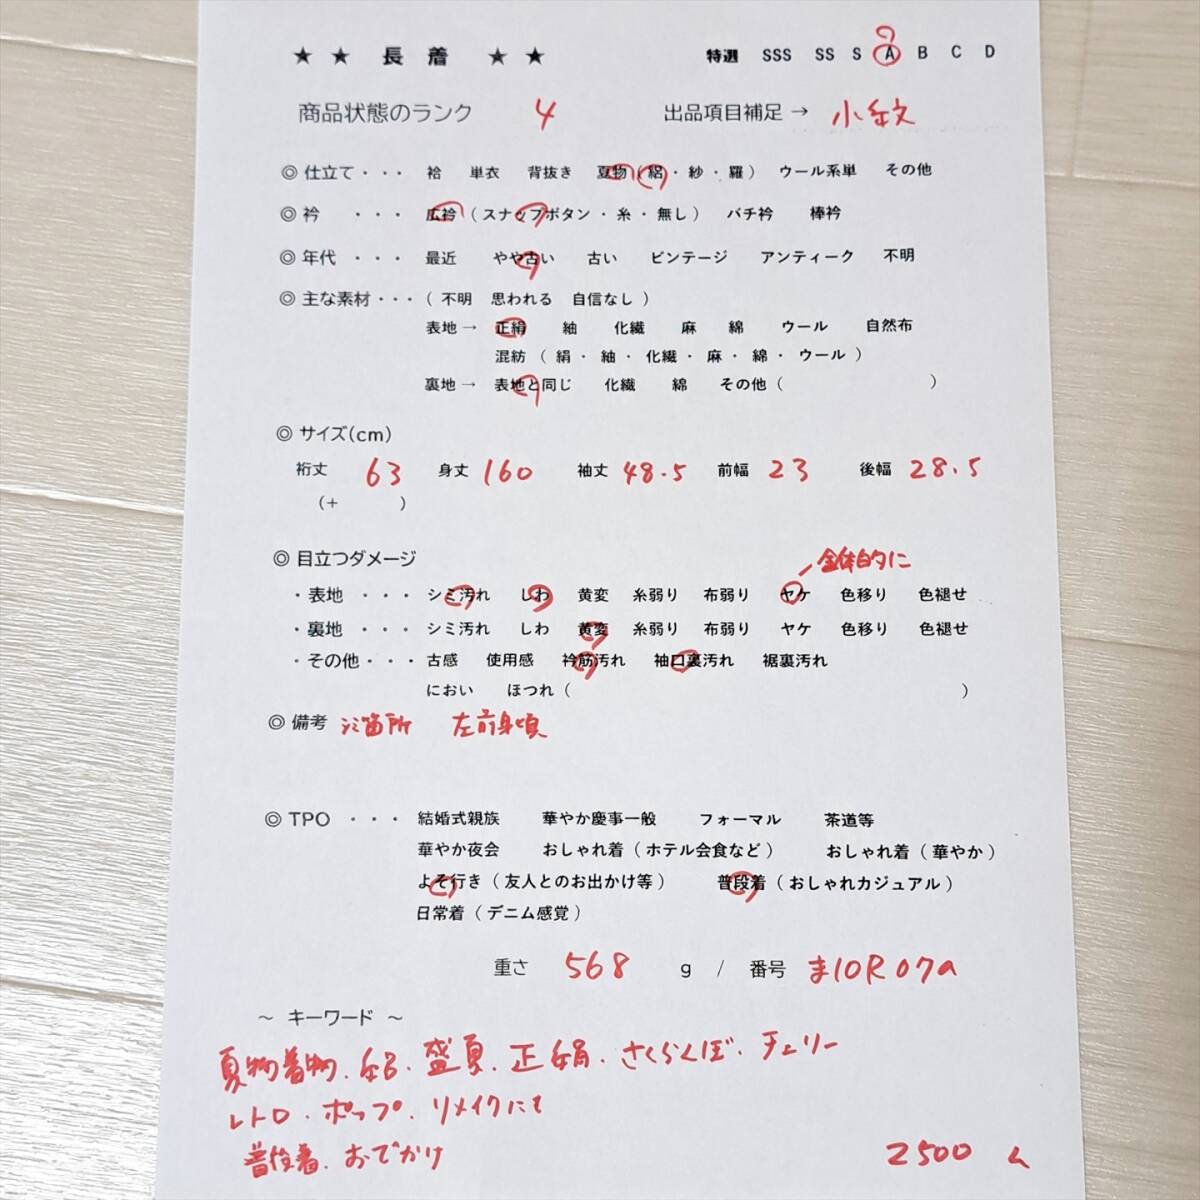 ★ ★ 長 着 ★ ★ 特選 SSS SS S A B C D
商品状態のランク 4 出品項目補足 → 小紋
◎ 仕立て ・・・ 袷 単衣 背抜き 夏物 ( 絽 ・ 紗 ・ 羅 ) ウール系単 その他
◎ 衿 ・・・ 広衿 ( スナップボタン ・ 糸 ・ 無し ) バチ衿 棒衿
◎ 年代 ・・・ 最近 やや古い 古い ビンテージ アンティーク 不明
◎ 主な素材 ・・・ ( 不明 思われる 自信なし )
表地 → 正絹 紬 化繊 麻 綿 ウール 自然布
混紡 ( 絹 ・ 紬 ・ 化繊 ・ 麻 ・ 綿 ・ ウール )
裏地 → 表地と同じ 化繊 綿 その他 ( )
◎ サイズ(cm)
裄丈 63 身丈 160 袖丈 48.5 前幅 23 後幅 28.5
(+ )
◎ 目立つダメージ 全体的に
・ 表地 ・・・ シミ汚れ しわ 黄変 糸弱り 布弱り ヤケ 色移り 色褪せ
・ 裏地 ・・・ シミ汚れ しわ 黄変 糸弱り 布弱り ヤケ 色移り 色褪せ
・ その他 ・・・ 古感 使用感 衿筋汚れ 袖口裏汚れ 裾裏汚れ
におい ほつれ ( )
◎ 備考 シミ箇所 左前身頃
◎ TPO ・・・ 結婚式親族 華やか慶事一般 フォーマル 茶道等
華やか夜会 おしゃれ着 ( ホテル会食など ) おしゃれ着 ( 華やか )
よそ行き ( 友人とのお出かけ等 ) 普段着 ( おしゃれカジュアル )
日常着 ( デニム感覚 )
重さ 568 g / 番号 ま10R07a
～ キーワード ～
夏物着物、絽、盛夏、正絹、さくらんぼ・チェリー
レトロ・ポップ、リメイクにも
普段着、おでかけ
2500 ム